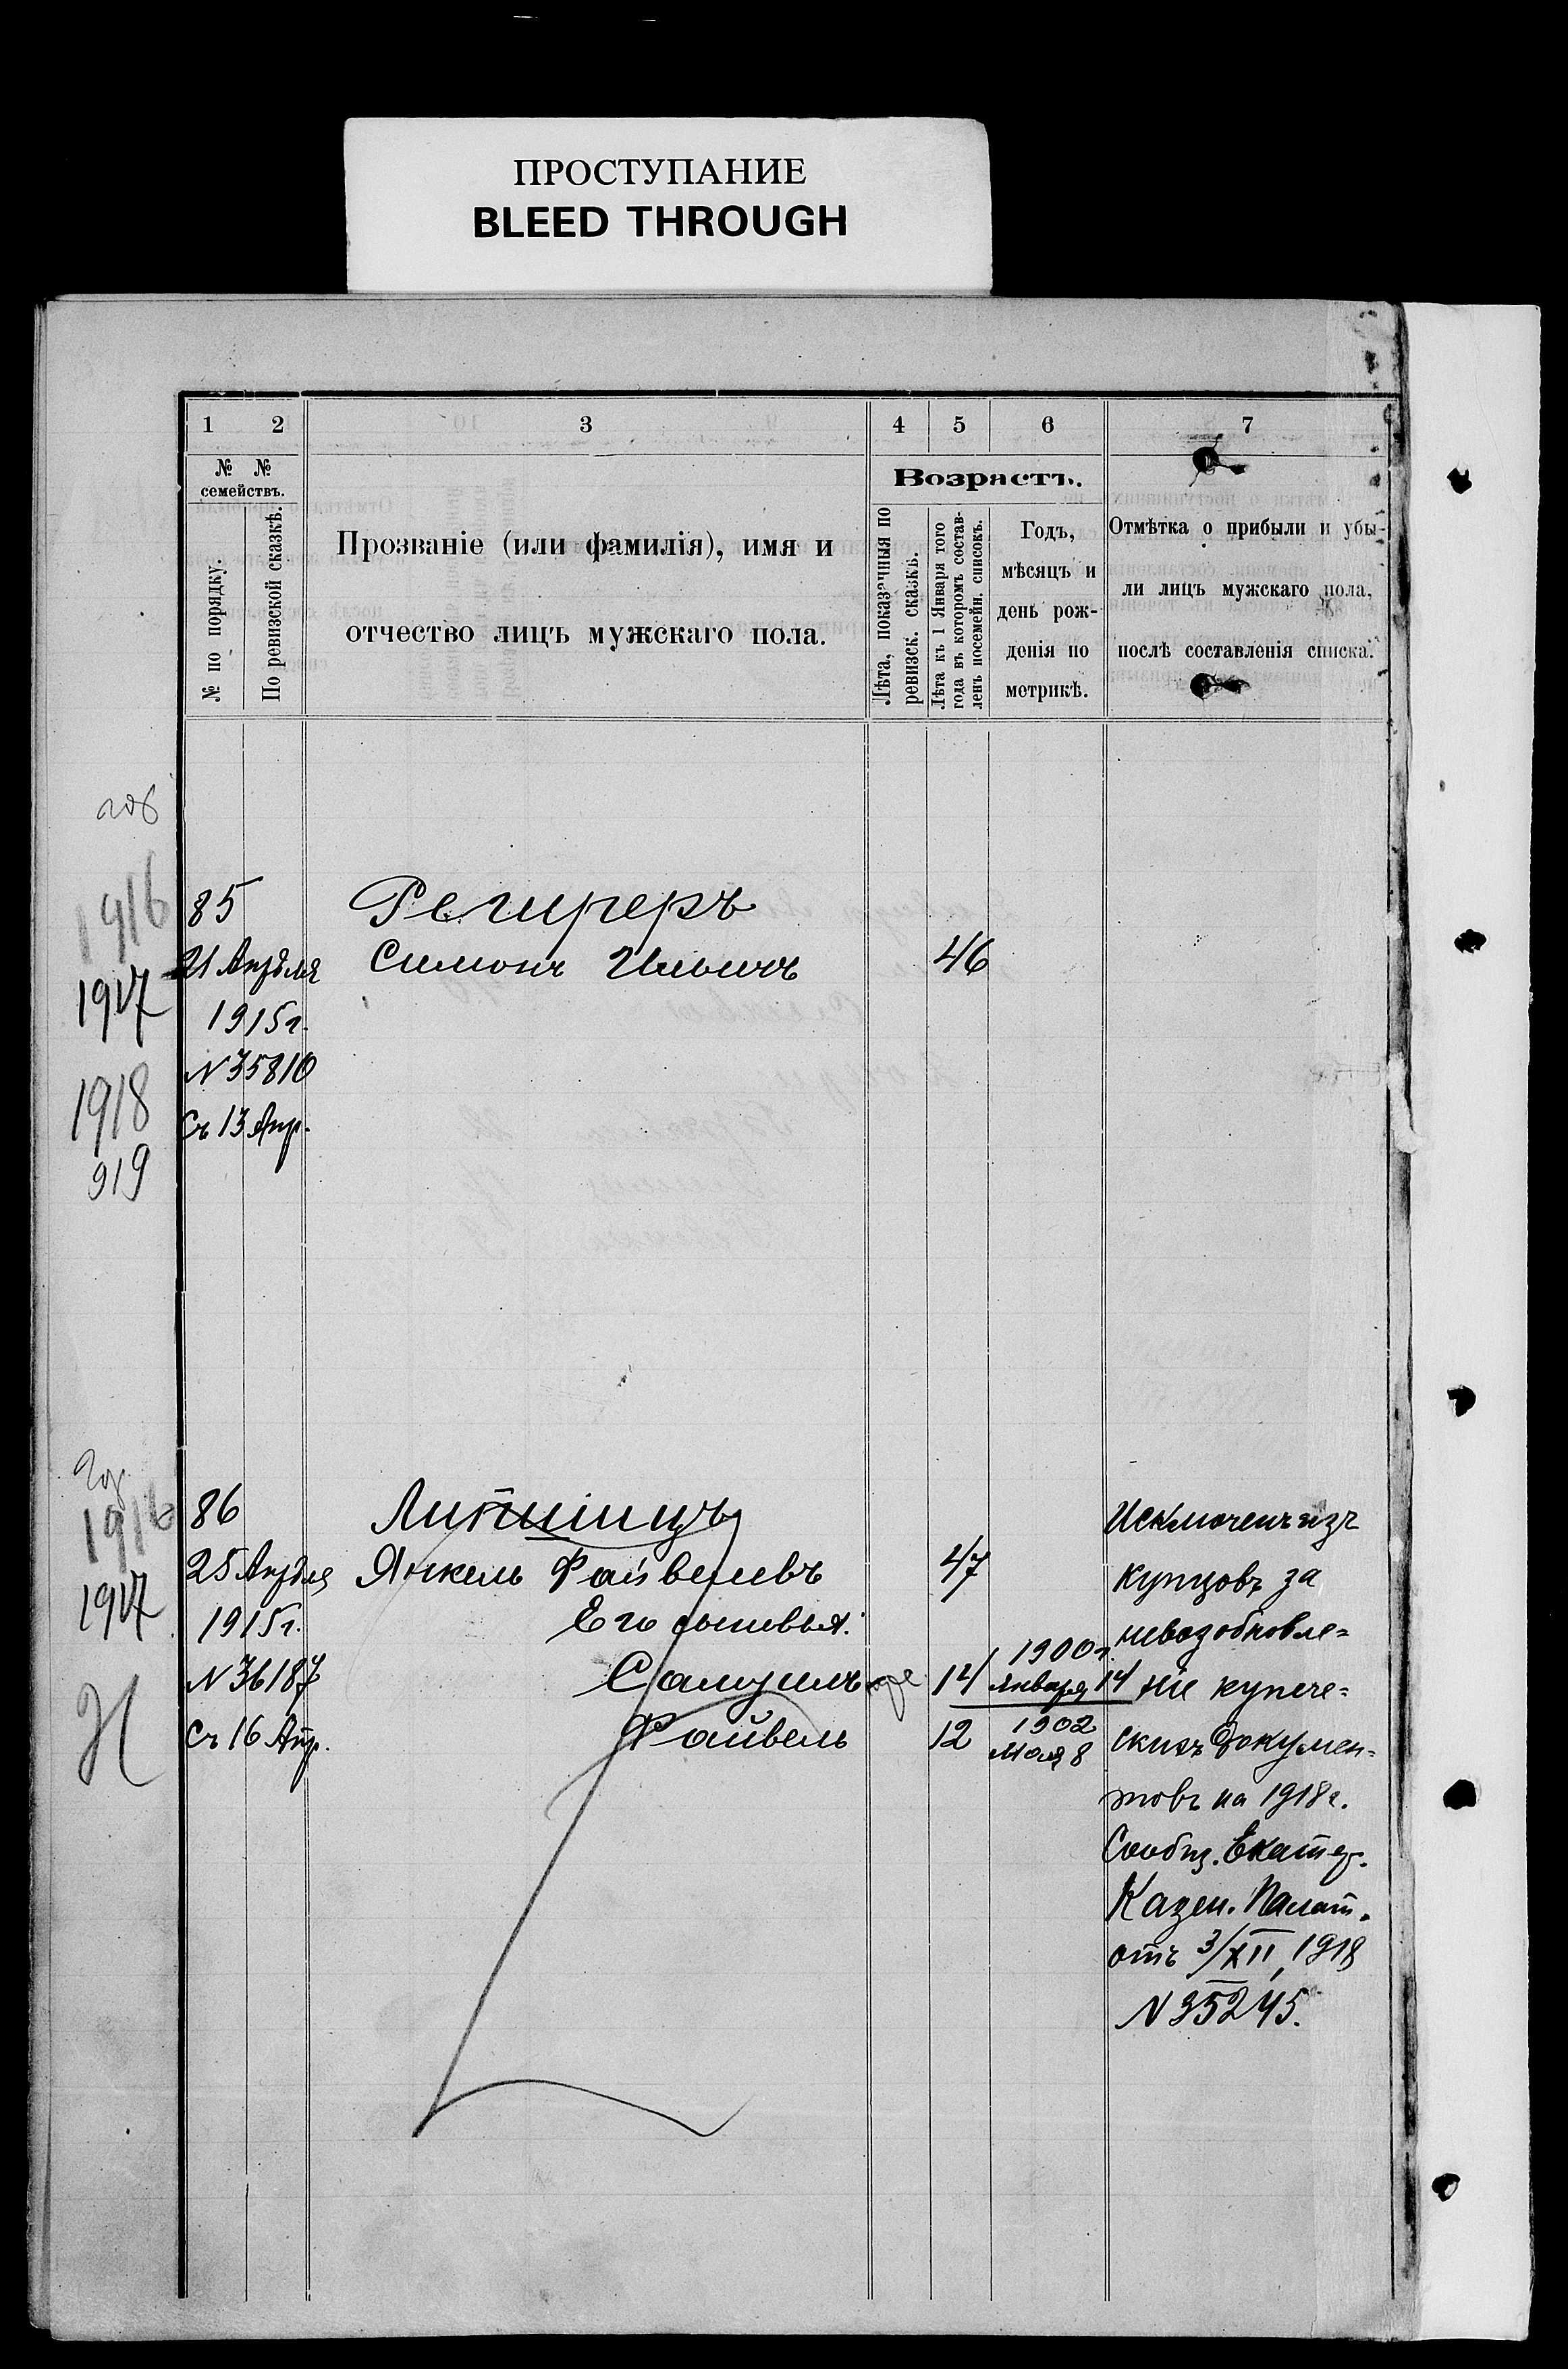 ПРОСТУПАНИЕ
BLEED THROUGH
1 2 3 4 5 6 7
№ № семействъ.
№ по порядку.
По ревизской сказкѣ.
Прозваніе (или фамилія), имя и
отчество лицъ мужскаго пола.
Возрастъ.
Лѣта, показанныя по
ревизск. сказкѣ.
Лѣта къ 1 Января того
года въ которомъ состав-
ленъ посемейн. списокъ.
Годъ,
мѣсяцъ и
день рож-
денія по
метрикѣ.
Отмѣтка о прибыли и убы-
ли лицъ мужскаго пола,
послѣ составленія списка.
1916
1917
1918
919
85
21 Апрѣля
1915 г.
N 35810
Съ 13 Апр.
Региреръ
Симонъ Ильичъ
46
1916
1917
86
25 Апрѣля
1915 г.
N 36187
Съ 16 Апр.
Липшицъ
Янкель Файвелевъ
47
Его сыновья:
Самуилъ
14
1900 г.
Января 14
Файвель
12
1902
Мая 8
Исключенъ изъ
купцовъ за
невозобновле=
ніе купече=
скихъ докумен=
товъ на 1918 г.
Сообщ. Екатер.
Казен. Палат.
отъ 3/XII, 1918
N 35245.